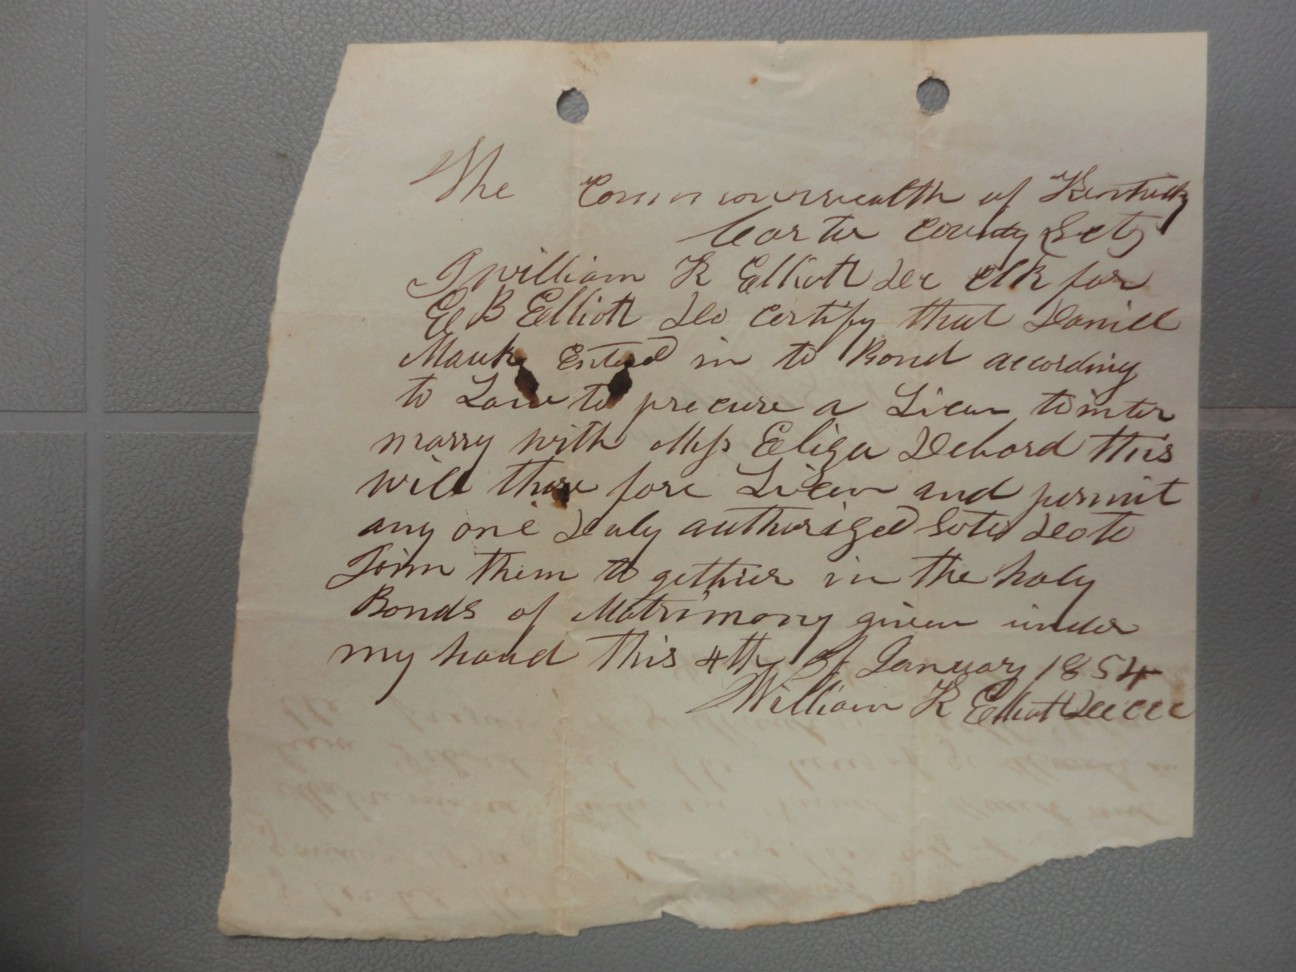 The Commonwealth of Kentucky
Carter County Sctg
I William K Elliott De Clk for
G B Elliott Do certify that Daniell
Mauk Enterd in to Bond according
to Law to precure a Licen to inter
marry with Miss Eliza Debord this
will there fore Licen and permit
any one Duly authorized to
Join them to gether in the holy
Bonds of Matrimony given under
my hand this 4th of January 1854
William K Elliott